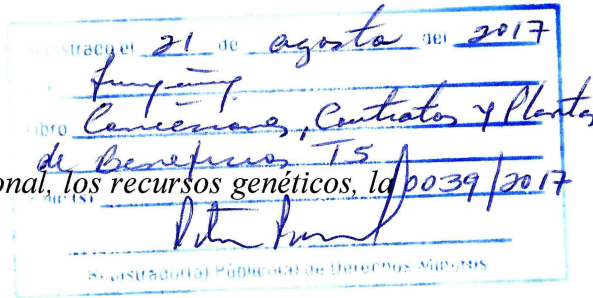 21 de agosto del 2017
Libro Concesiones, Contratos y Plantas
de Beneficios T5
onal, los recursos genéticos, la 0039/2017
Registrador(a) Público(a) de Derechos Mineros